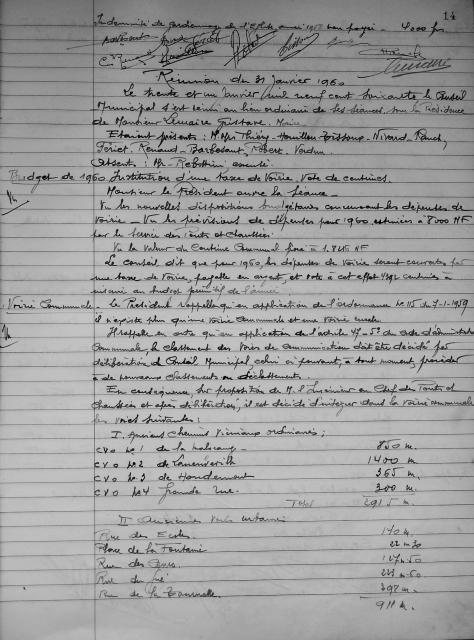 14
Indemnité de gardiennage de l'Eglise année 1958 non payée - 4000 frs
Réunion du 31 Janvier 1960
Le trente et un Janvier mil neuf cent soixante le Conseil
Municipal s'est réuni au lieu ordinaire de ses séances, sous la Présidence
de Monsieur Lemaire Gustave, Maire
Etaient présents : MMrs Thiéry - Houillon - Bissous - Nivard, Rauch,
Foriet, Renaud - Barbesant, Robert - Verdun
Absent : Mr Rebottini, excusé.
Budget de 1960 Institution d'une taxe de Voirie, Vote de centimes.
Monsieur le Président ouvre la Séance
Vu les nouvelles dispositions budgétaires concernant les dépenses de
Voirie - Vu les prévisions de dépenses pour 1960, estimées à 8000 NF
par le service des Ponts et Chaussées
Vu la valeur du Centime Communal fixé à 1.845 NF
Le Conseil dit que pour 1960, les dépenses de Voirie seront couvertes par
une taxe de Voirie, payable en argent, et vote à cet effet centimes à
inscrire au budget primitif de l'année
Voirie Communale - Le Président rappelle qu'en application de l'ordonnance No 115 du 7-1-1959
il n'existe plus qu'une voirie communale et une voirie rurale
Il rappelle en outre qu'en application de l'article 47-5° du code d'administration
Communale, le classement des Voies de Communication doit être décidé par
délibération du Conseil Municipal celui-ci pouvant, à tout moment, procéder
à de nouveaux classements ou déclassements.
En conséquence, sur proposition de M. l'Ingénieur en Chef des Ponts et
Chaussées et après délibération, il est décidé d'intégrer dans la voirie communale
les voies suivantes :
I. Anciens Chemins Vicinaux ordinaires ;
CVO No 1 de la 850 m.
CVO No 2 de 1400 m
CVO No 3 de Houdemont 365 m.
CVO No 4 Grande Rue. 300 m.
Total 2915 m.
II Anciennes Voies urbaines
Rue des Ecoles 140 m.
Place de la Fontaine 22 m 30
Rue des 127 m. 50
Rue du
Rue de la 398 m.
911 m.